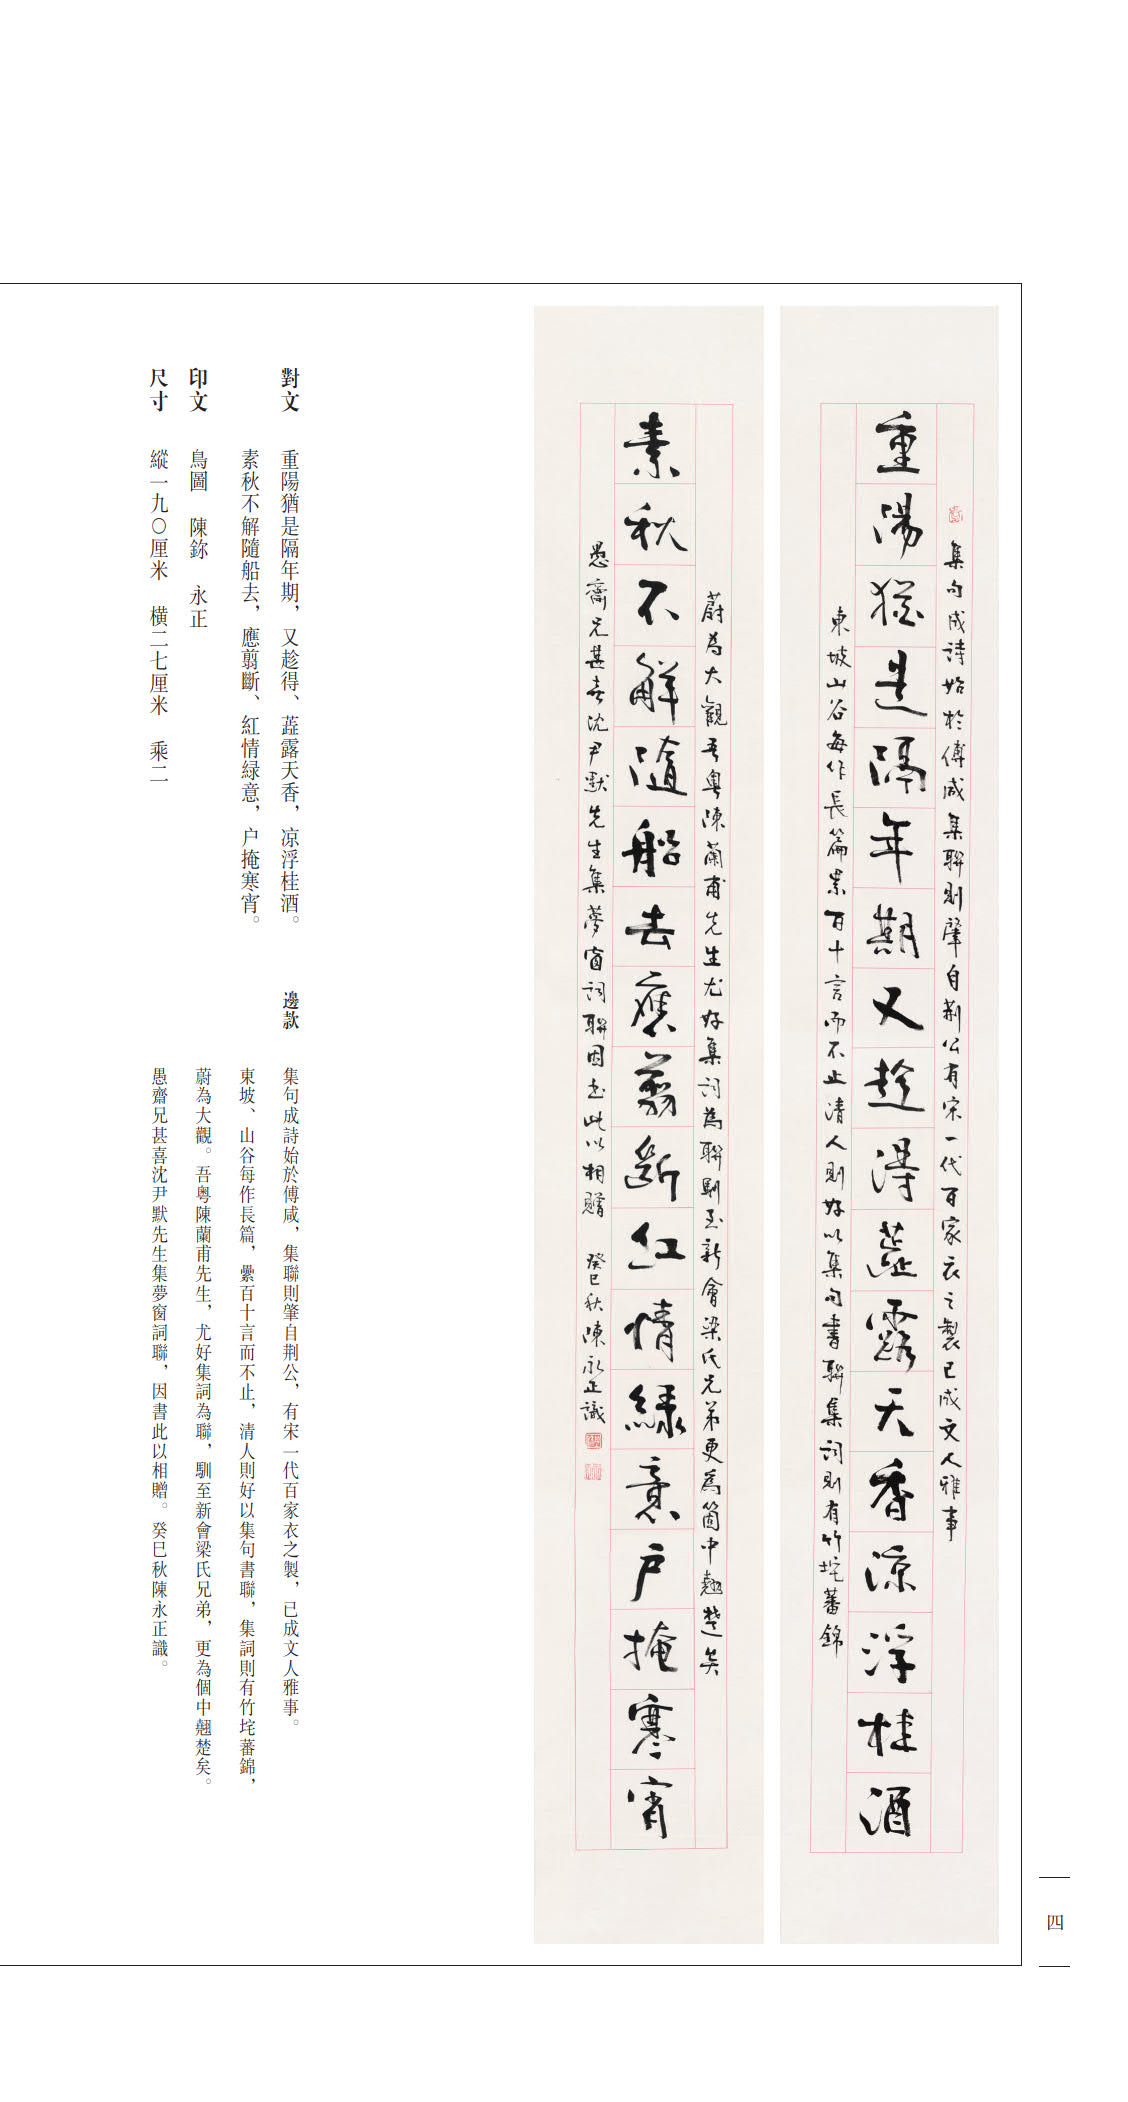 重陽猶是隔年期又趁得蕋露天香涼浮桂酒
集句成詩始於傅咸集聯則肇自荆公有宋一代百家衣之製已成文人雅事
東坡山谷每作長篇纍百十言而不止清人則好以集句書聯集詞則有竹垞蕃錦
素秋不解隨船去應翦斷紅情綠意戶掩寒宵
蔚為大觀吾粤陳蘭甫先生尤好集詞為聯馴至新會梁氏兄弟更為箇中翹楚矣
愚齋兄甚喜沈尹默先生集夢窗詞聯因書此以相贈 癸巳秋陳永正識
對文 重陽猶是隔年期，又趁得、蕋露天香，凉浮桂酒。
素秋不解隨船去，應翦斷、紅情緑意，户掩寒宵。
印文 鳥圖 陳鉨 永正
尺寸 縱一九〇厘米 橫二七厘米 乘二
邊款 集句成詩始於傅咸，集聯則肇自荆公，有宋一代百家衣之製，已成文人雅事。
東坡、山谷每作長篇，纍百十言而不止，清人則好以集句書聯，集詞則有竹垞蕃錦，
蔚為大觀。吾粤陳蘭甫先生，尤好集詞為聯，馴至新會梁氏兄弟，更為個中翹楚矣。
愚齋兄甚喜沈尹默先生集夢窗詞聯，因書此以相贈。癸巳秋陳永正識。
四